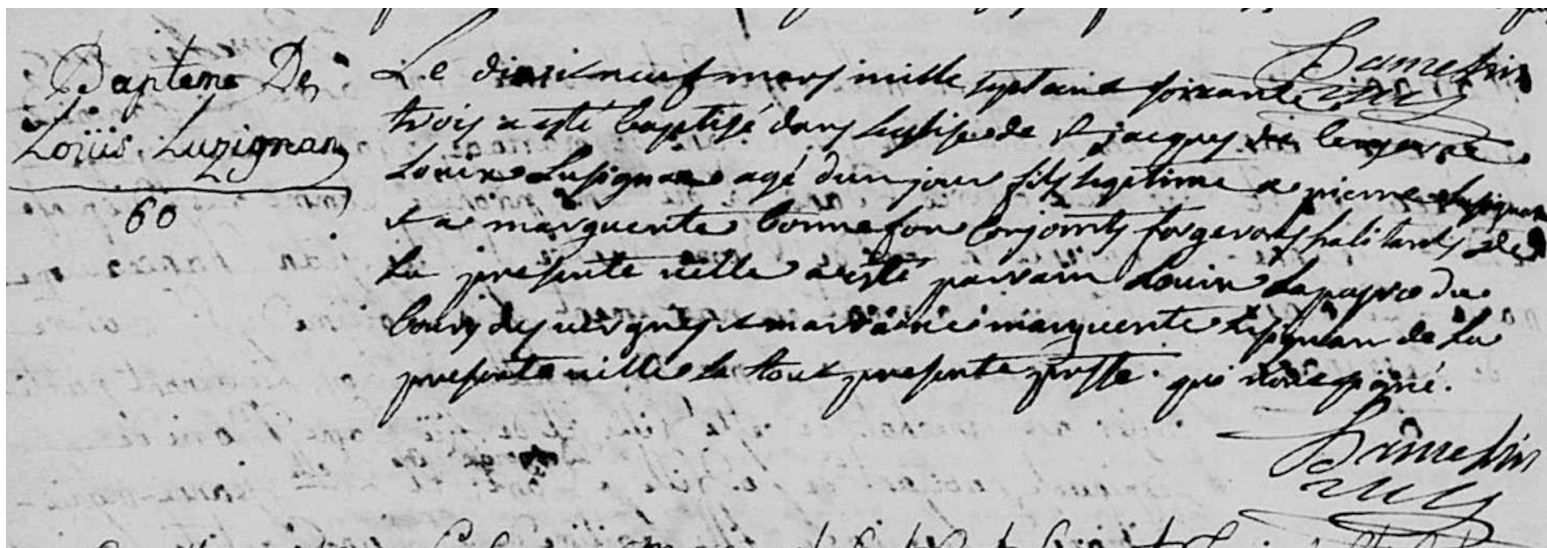 Bapteme De
Loüis Luzignan
60
Le dixneuf mars mille sept cent soixante
trois a esté baptisé dans leglise de st jacques de bergerac
Louis Lusignan agé dun jour fils legitime a pierre Lusignan
et a marguerite bonnefon conjoints forgerons habitants de
la presente ville a esté parrain Louis Lapayre du
bourg de et marraine marguerite Lusignan de la
presente ville le tout presente qui nont signé.